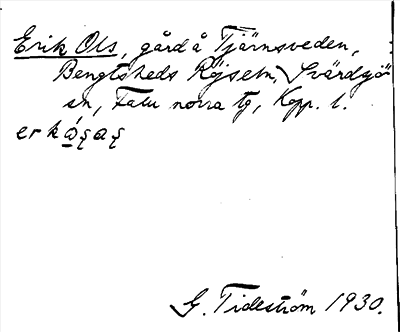 Erik Ols, gård å Tjärnsveden,
Bengtsheds Röjsetn, Svärdsjö
sn, Falu norra tg, Kopp. l.
er k
G. Tideström 1930.